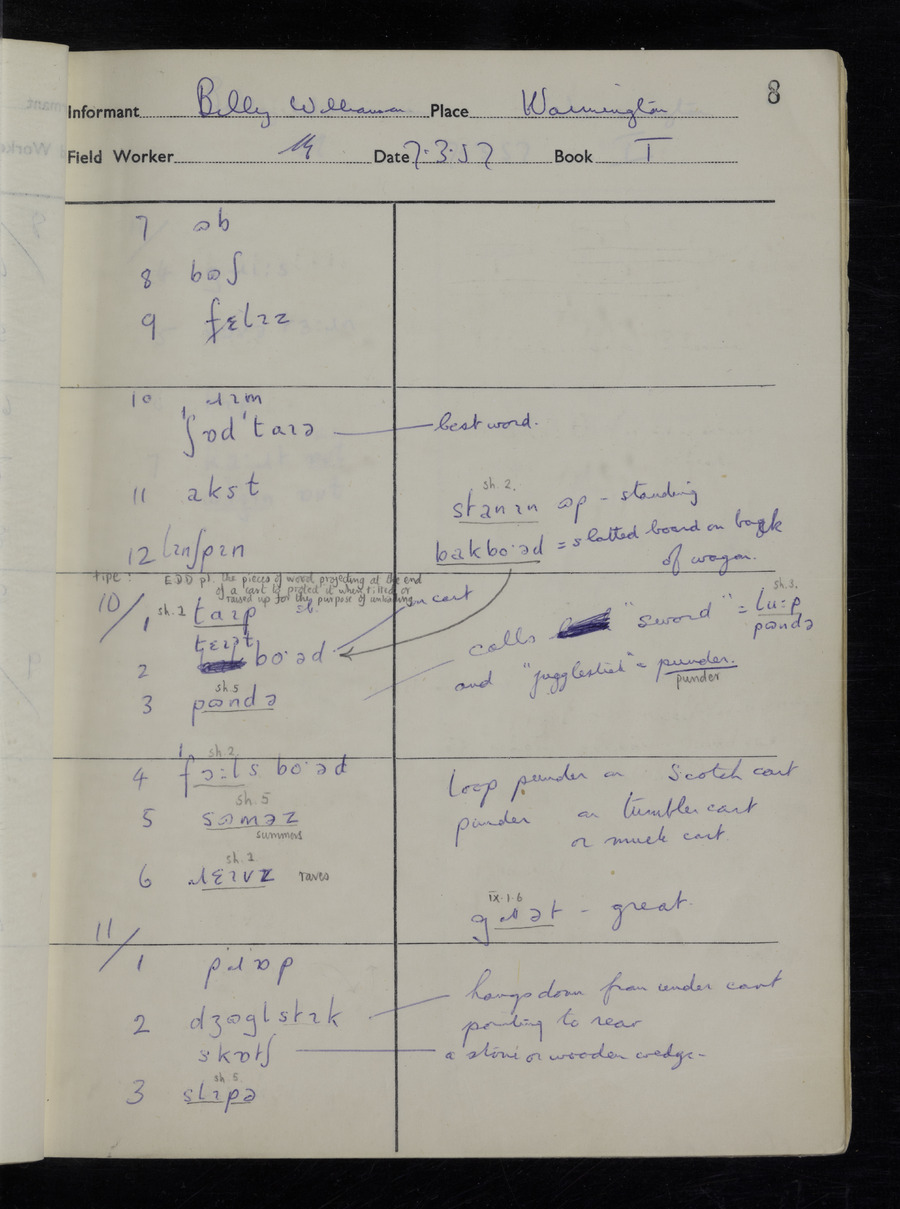 8
Informant Billy Williamson Place Warmington
Field Worker Date 7.3.57 Book I
7 ɷb
8 bɷʃ
9 fɛlɪz
10 ɹɪm
ˈʃɒdˈtaɪə best word.
11 akst
sh. 2.
stanɪn ɷp - standing
12 lɪnʃpɪn
bakbo·əd = slatted board on back
of wagon.
tipe: EDD pl. the pieces of wood projecting at the end
of a cart to protect it when tilted or
raised up for the purpose of unloading
10/ 1 sh. 2 taɪp sb. on cart
2 tɛɪɫt bo·əd
calls "sword" = lu:p
sh. 3.
pɷndə
and "jugglestick" = punder.
punder
sh. 5
3 pɷndə
sh. 2.
4 ˈfɔ:ls bo·əd
loop punder on Scotch cart
sh. 5
5 sɷməz
summers
punder on tumbler cart
or muck cart.
sh. 2
6 ɹɛɪvz raves
IX.1.6
gɹət - great.
11/ 1 pɹɒp
2 dʒɷglstɪk
hangs down from under cart
pointing to rear
skɒtʃ a stone or wooden wedge-
sh. 5
3 slɪpə